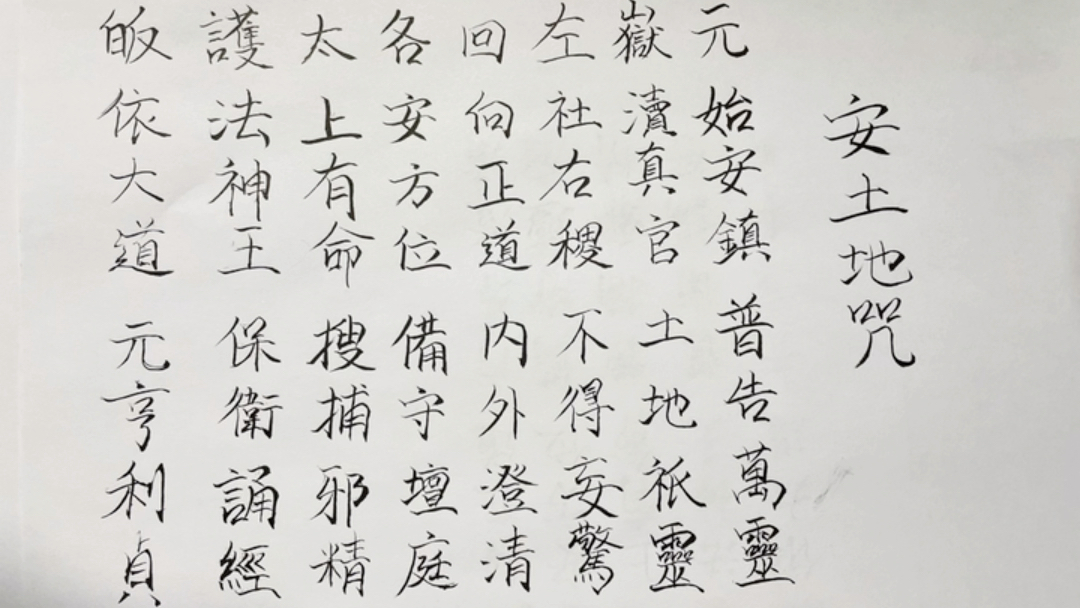 安土地咒
元始安鎮 普告萬靈
嶽瀆真官 土地祇靈
左社右稷 不得妄驚
回向正道 内外澄清
各安方位 備守壇庭
太上有命 搜捕邪精
護法神王 保衛誦經
皈依大道 元亨利貞